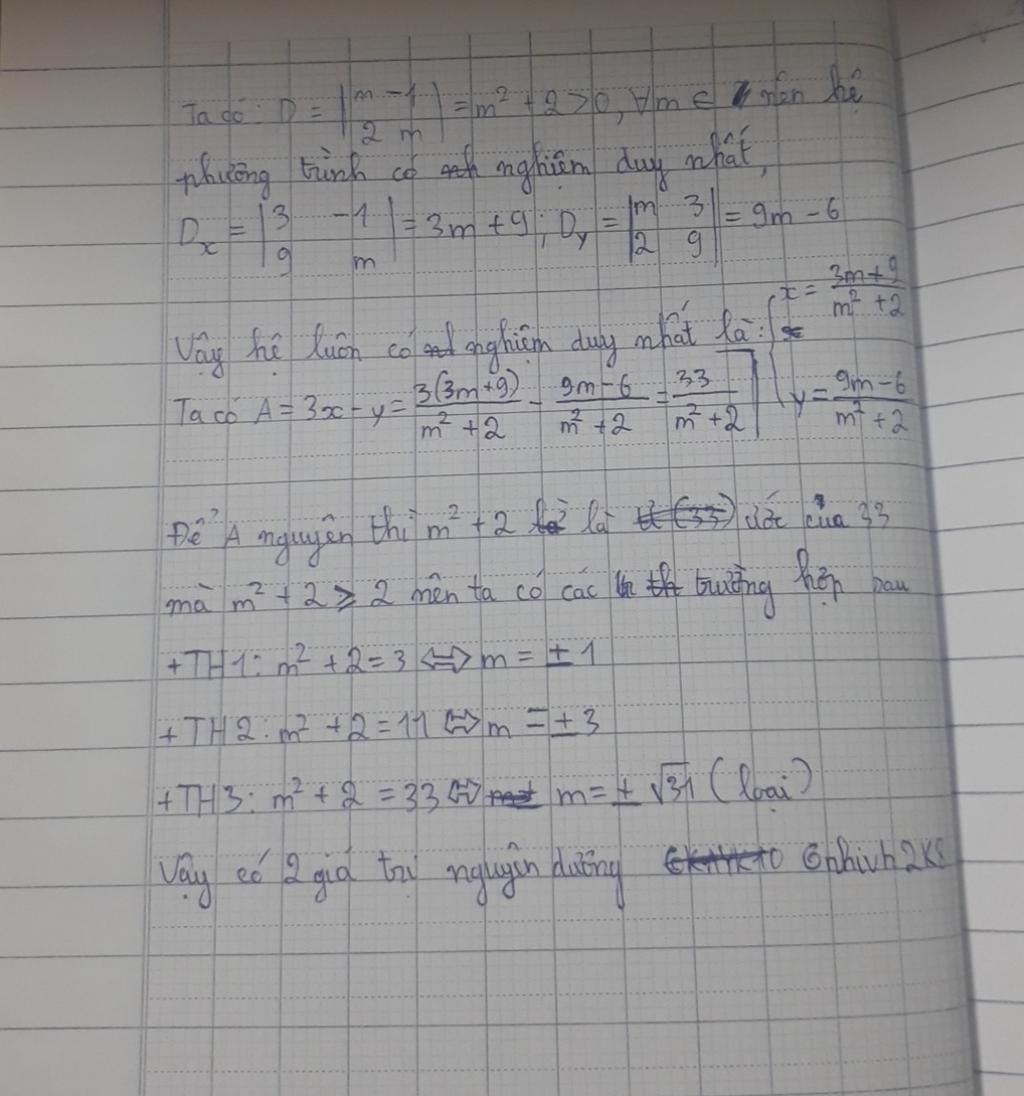 Ta có: D = |m -1 / 2 m| = m² + 2 > 0, ∀m ∈ nên hệ
phương trình có nghiệm duy nhất,
Dx = |3 -1 / 9 m| = 3m + 9; Dy = |m 3 / 2 9| = 9m - 6
Vậy hệ luôn có nghiệm duy nhất là: { x = (3m+9)/(m² + 2)
y = (9m-6)/(m² + 2)
Ta có A = 3x - y = 3(3m+9)/(m² + 2) - (9m-6)/(m² + 2) = 33/(m² + 2)
Để A nguyên thì m² + 2 là ước của 33
mà m² + 2 ⩾ 2 nên ta có các trường hợp sau
+TH1: m² + 2 = 3 ⇔ m = ± 1
+TH2: m² + 2 = 11 ⇔ m = ± 3
+TH3: m² + 2 = 33 ⇔ m = ± √31 (loại)
Vậy có 2 giá trị nguyên dương